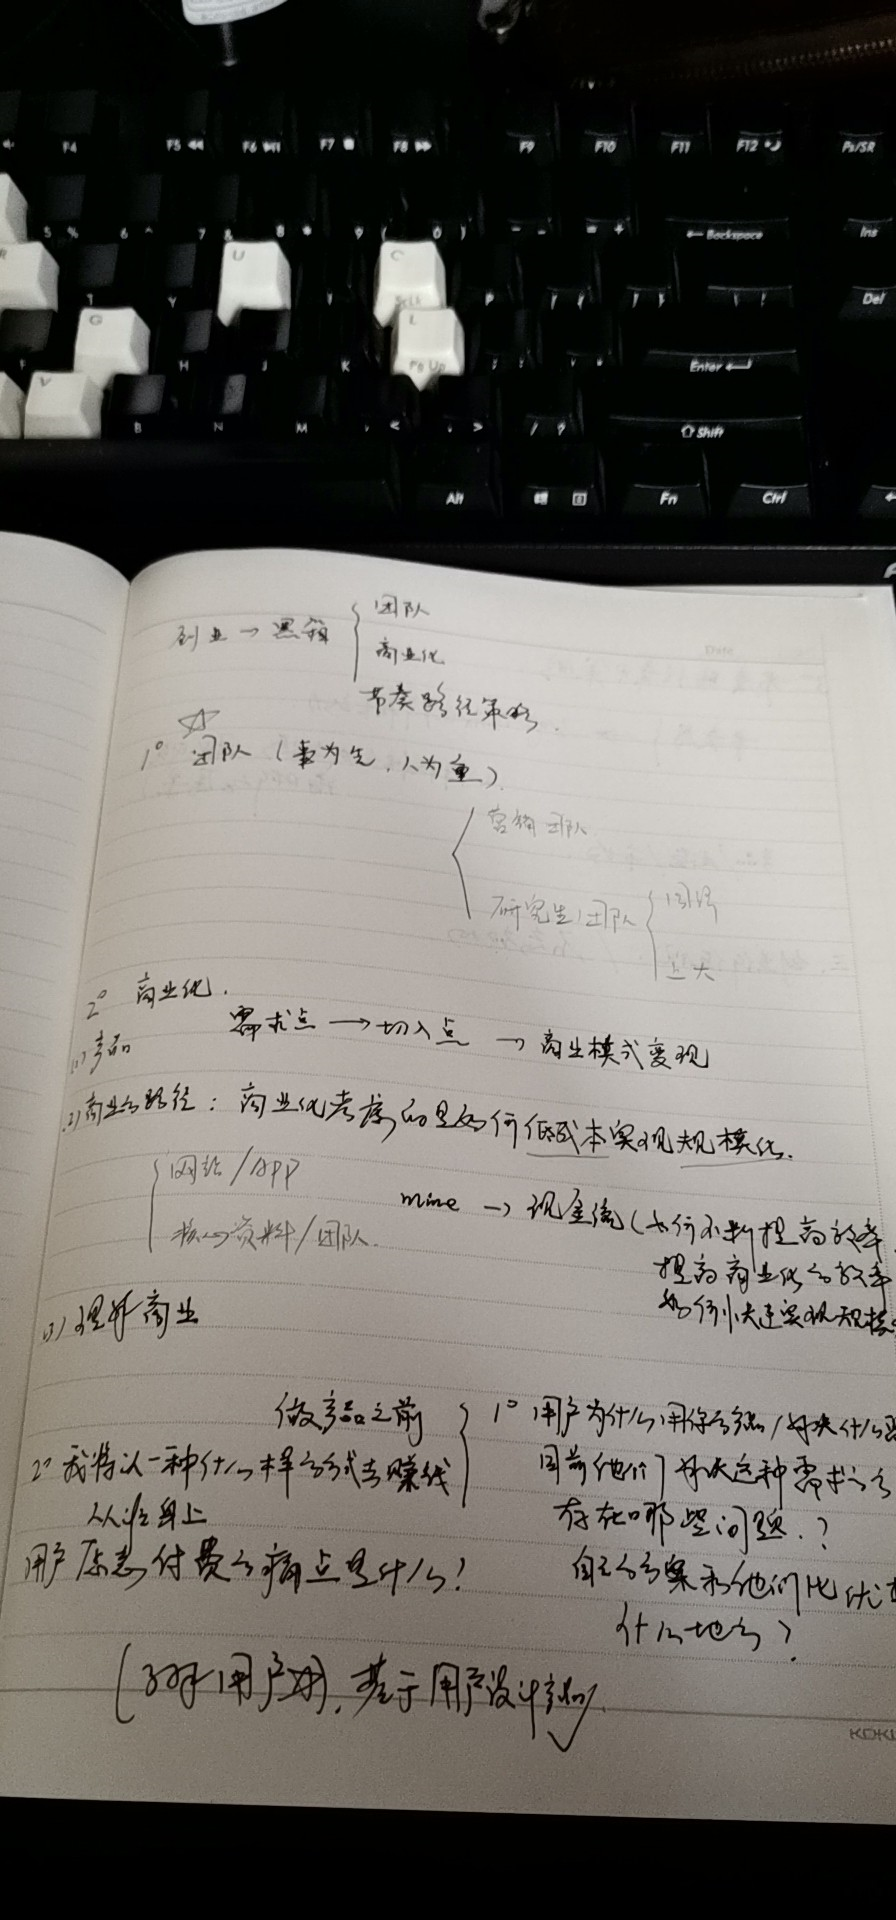 F4 F5 F6 F7 F8 F9 F10 F11 F12 Ps/SR
5 % 6 ^ 7 & 8 * 9 ( 0 ) - _ = + ← Backspace Ins
R T Y U C P Del
ScrLk
F G H J K L Enter
Pg Up
V B N M , < . > / ? Shift
Alt Fn Ctrl
Date
创业 → 黑箱
团队
商业化
节奏路径策略.
1° 团队 (事为先，人为重).
营销团队
研究生团队
2° 商业化.
(1) 产品
需求点 → 切入点 → 商业模式变现
(2) 商业的路径：商业化考虑的是如何低成本实现规模化.
网站/APP
mine → 现金流 (如何不断提高效率.
核心资料/团队.
提高商业化的效率
如何快速实现规模
(3) 理解商业
做产品之前
1° 用户为什么用你的 /解决什么
2° 我将以一种什么样的方式去赚钱
目前他们解决这种需求的
从谁身上
存在哪些问题.？
用户愿意付费的痛点是什么？
自己的方案和他们比优
什么地方？
用户 . 基于用户设计产品
KOKU